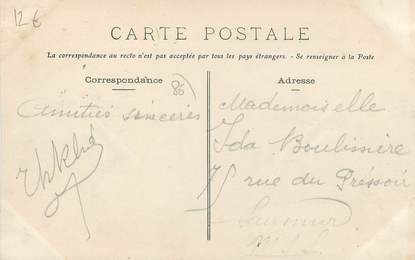 12€
CARTE POSTALE
La correspondance au recto n'est pas acceptée par tous les pays étrangers. - Se renseigner à la Poste
Correspondance
86
Adresse
Amitiés sincères
Mademoiselle
Ida Boulinière
rue du Pressoir
Saumur